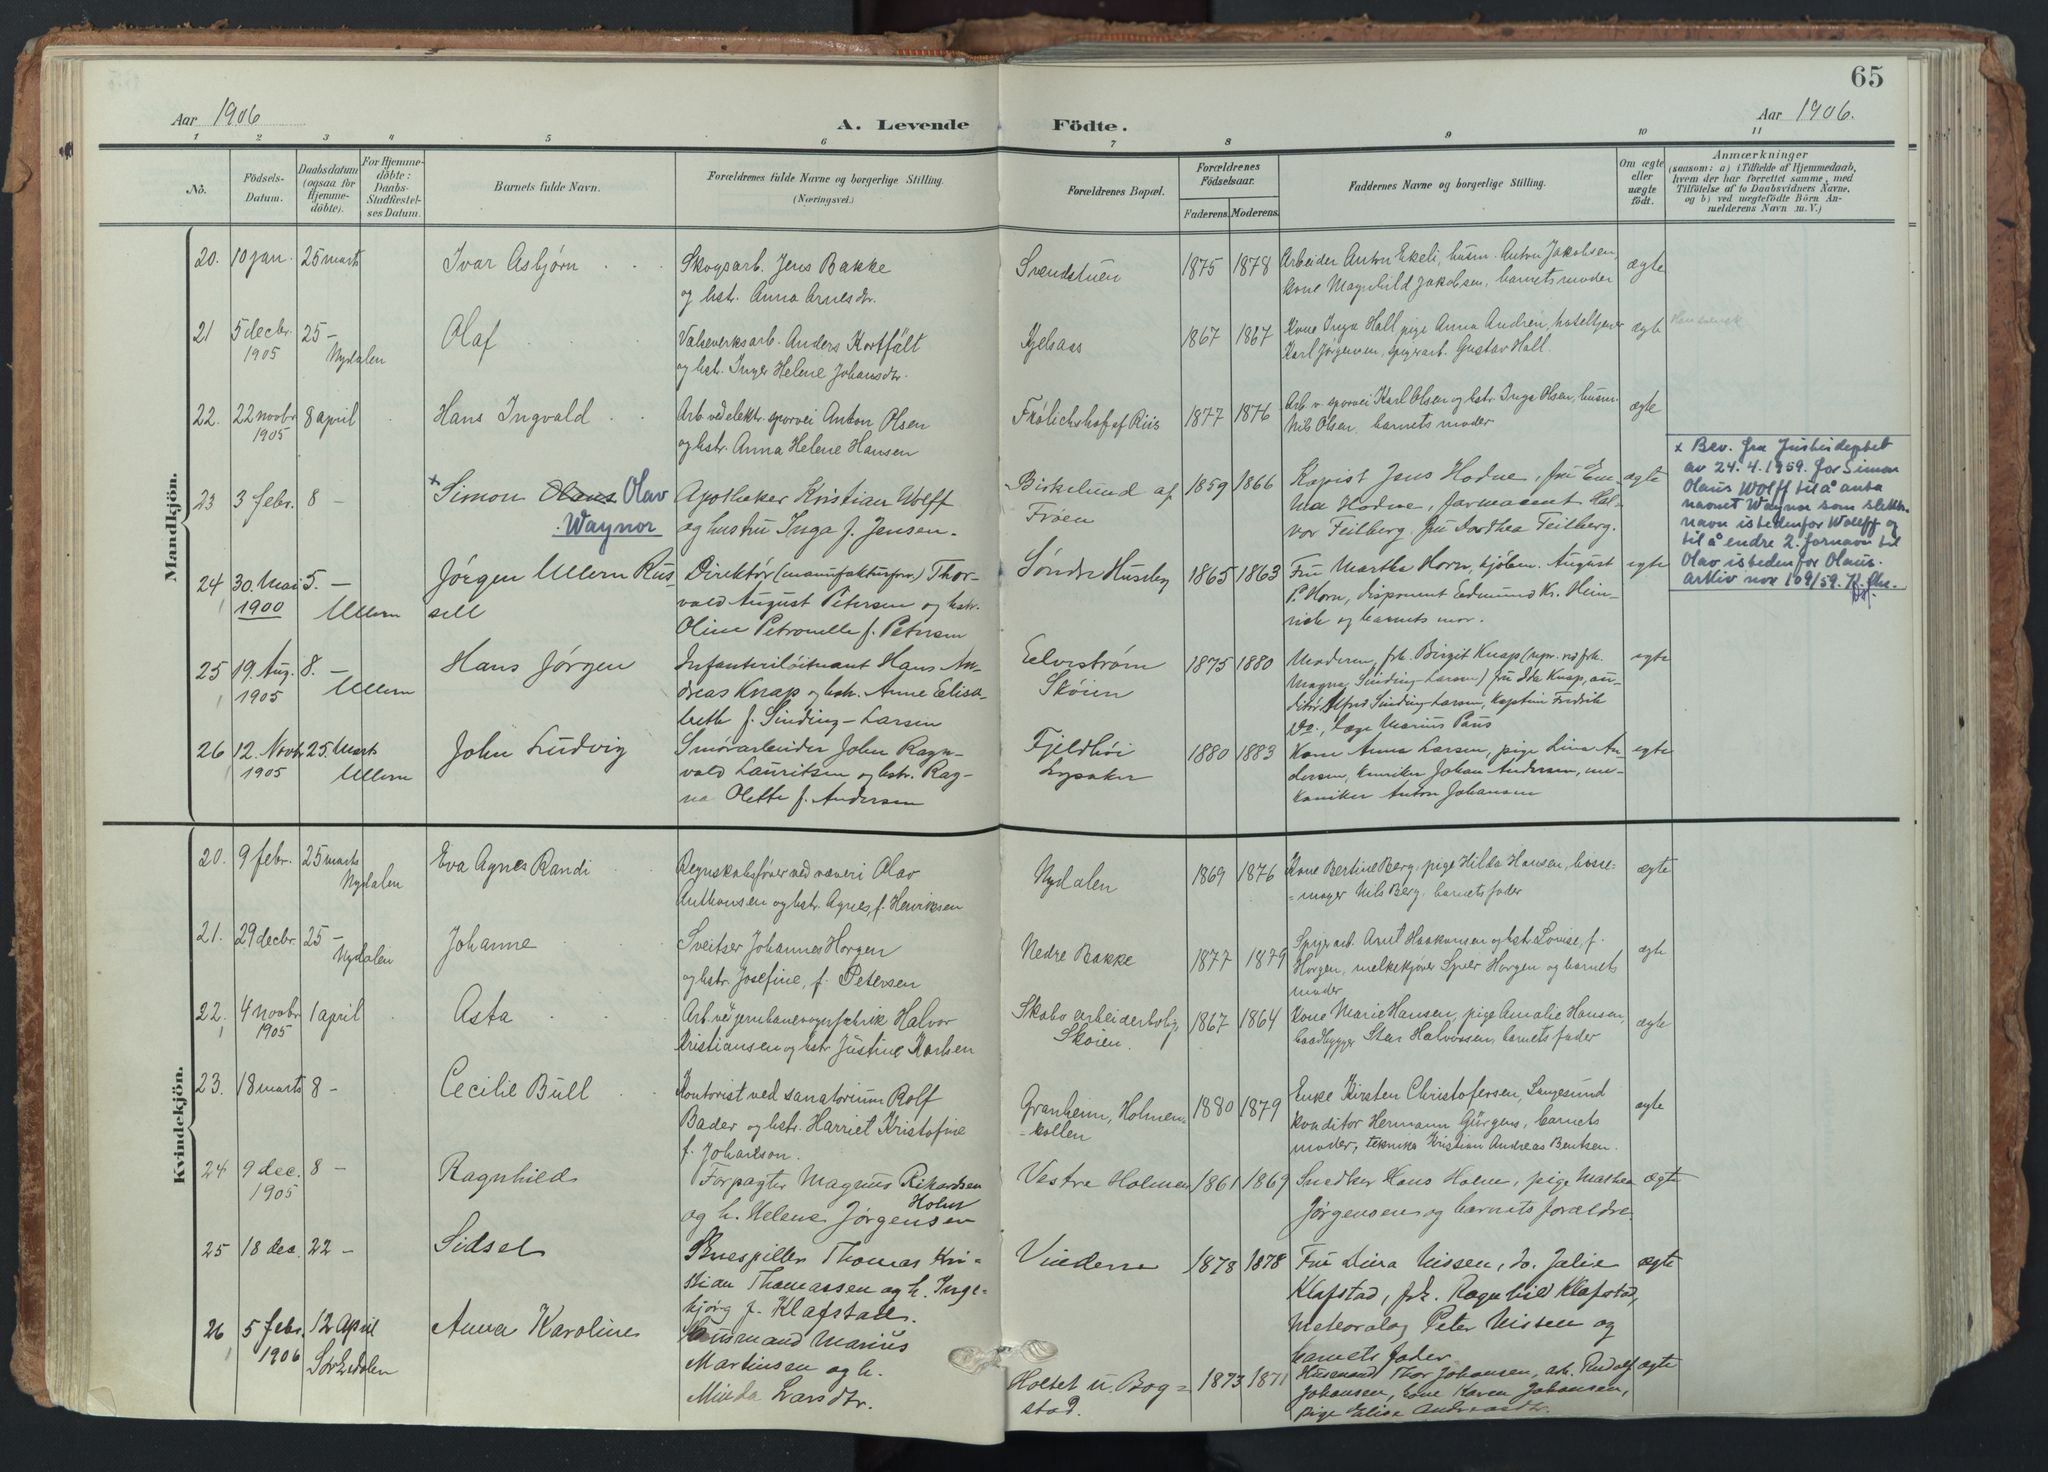 65
Aar 1906
A. Levende Födte.
Aar 1906.
1 2 3 4 5 6 7 8 9 10 11
No.
Födsels-
Datum.
Daabsdatum
(ogsaa for
Hjemme-
döbte).
For Hjemme-
döbte:
Daabs-
Stadfæstel-
ses Datum.
Barnets fulde Navn.
Forældrenes fulde Navne og borgerlige Stilling.
(Næringsvei.)
Forældrenes Bopæl.
Forældrenes
Födselsaar.
Faderens. Moderens.
Faddernes Navne og borgerlige Stilling.
Om ægte
eller
uægte
födt.
Anmærkninger
(saasom: a) i Tilfælde af Hjemmedaab,
hvem der har forrettet samme, med
Tilföielse af to Daabsvidners Navne,
og b) ved uægtefödte Börn An-
melderens Navn m. V.)
Mandkjön.
20. 10 jan. 25 marts Ivar Asbjørn
Skogsarb. Jens Bakke
og hstr. Anna Arnesdtr.
Svendstuen 1875 1878
Arbeider Anton Ekeli, husm. Anton Jakobsen,
kone Magnhild Jakobsen, barnets moder
ægte
21 5 decbr. 1905 25 – Nydalen Olaf
Valseverksarb. Anders Kortfält
og hstr. Inger Helene Johansdtr.
Kjelsaas 1867 1867
Kone Inga Hall, pige Anna Andrén, hotelkjener
Karl Jørgensen, spigerarb. Gustav Hall.
ægte
22. 22 novbr 1905 8 april Hans Ingvald
Arb. ved elektr. sporvei Anton Olsen
og hstr. Anna Helene Hansen
Frølichshof af Riis 1877 1876
Arb. v. sporvei Karl Olsen og hstr. Inga Olsen, husm.
Nils Olsen, barnets moder
ægte
23 3 febr. 8 – × Simon Olaus Olav
Waynor
Apotheker Kristian Wolff
og hustru Inga f. Jensen.
Birkelund af
Frøen
1859 1866
Kopist Jens Hodne, fru Em-
ma Hodne, farmaceut Hal-
vor Feilberg, fru Dorthea Feilberg.
ægte
× Bev. fra Justisdeptet
av 24.4.1959 for Simon
Olaus Wolff til å anta
navnet Waynor som slekts-
navn istedenfor Wolff og
til å endre 2. fornavn til
Olav isteden for Olaus.
Arkiv nor 109/59.
24 30 Mai 1900 5. – Ullern Jørgen Ullern Rus
sell
Direktør (manufakturforr.) Thor-
vald August Petersen og hstr.
Oline Petronelle f. Petersen
Søndre Huseby 1865 1863
Fru Martha Horn, kjøbm. August
P. Horn, disponent Edmund Kr. Hein-
rich og barnets mor.
egte
25 19 Aug. 1905 8. – Ullern Hans Jørgen
Infanteriløitnant Hans An-
dreas Knap og hstr. Anne Elisa-
beth f. Sinding-Larsen
Eelvistrøm
Skøien
1875 1880
Moderen, frk. Birgit Knap (repr. ved frk.
Magna Sinding-Larsen) fru Ida Knap, au-
ditør Alfred Sinding-Larsen, kaptein Fredrik
Do., læge Marius Paus
egte
26 12. Novbr 1905 25. Marts Ullern John Ludvig
Smörarbeider John Ragn-
vald Lauritsen og hstr. Rag-
na Olette f. Andersen
Fjeldhøi
Lysaker
1880 1883
Kone Anna Larsen, pige Lina An-
dersen, kemiker Johan Andersen, me-
kaniker Anton Johansen
egte
Kvindekjön.
20. 9 febr. 25 marts Nydalen Eva Agnes Randi
Regnskabsfører ved væveri Olav
Anthonsen og hstr. Agnes, f. Henriksen
Nydalen 1869 1876
Kone Bertine Berg, pige Hilda Hansen, bosse-
-mager Nils Berg, barnets fader
ægte
21. 29 decbr. 25 – Nydalen Johanne
Sveitser Johannes Horgen
og hstr. Josefine, f. Petersen
Nedre Bakke 1877 1879
Spigerarb. Arnt Haakonsen og hstr. Lovise, f.
Horgen, melkekjører Syver Horgen og barnets
moder
ægte
22. 4 novbr 1905 1 april Asta
Arb. ved jernbanevognfabrik Halvor
Kristiansen og hstr Justine Karlsen
Skabo arbeiderbolig,
Skøien.
1867 1864
Kone Marie Hansen, pige Amalie Hansen,
baadbygger Star Halvorsen, barnets fader
ægte
23. 18 marts 8 – Cecilie Bull
Kontorist ved sanatorium Rolf
Bader og hstr. Harriet Kristofine
f. Johanson.
Granheim, Holmen-
-kollen
1880 1879
Enke Kirsten Christofersen, Langesund
konditor Hermann Gürgens, barnets
moder, tekniker Kristian Andreas Bentsen.
ægte
24 9 dec. 1905 8 – Ragnhild
Forpagter Magnus Rikardsen
Holm
og h. Helene Jørgensen
Vestre Holmen 1861 1869
Snedker Hans Holm, pige Mathea
Jørgensen og barnets forældre.
ægte
25 18 dec. 22 – Sidsel
Skuespiller Thomas Kri-
stian Thomassen og h. Inge-
bjørg f. Klafstad.
Vindern 1878 1878
Fru Dina Nissen, do. Julie
Klafstad, frk. Ragnhild Klafstad,
Meteorolog Peter Nissen og
barnets fader
ægte
26 5 febr. 1906 12 April Sørkedalen Anna Karoline
Husmand Marius
Martinsen og h.
Minda Larsdtr.
Holtet u. Bog-
stad.
1873 1871
Husmand Thor Johansen, arb. Rudolf
Johansen, kone Karen Johansen,
pige Elise Andreasdtr.
ægte